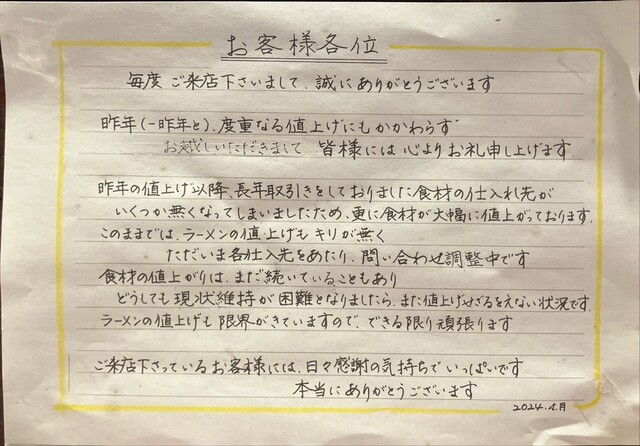 お客様各位
毎度 ご来店下さいまして、誠にありがとうございます
昨年(一昨年と)、度重なる値上げにもかかわらず
お越しいただきまして 皆様には心よりお礼申し上げます。
昨年の値上げ以降、長年取引きをしておりました食材の仕入れ先が
いくつか無くなってしまいましたため、更に食材が大幅に値上がっております。
このままでは、ラーメンの値上げもキリが無く
ただいま各仕入先をあたり、問い合わせ調整中です
食材の値上がりは、まだ続いていることもあり
どうしても現状維持が困難となりましたら、また値上げせざるをえない状況です。
ラーメンの値上げも限界がきていますので、できる限り頑張ります
ご来店下さっているお客様には、日々感謝の気持ちでいっぱいです
本当にありがとうございます
2024.1月